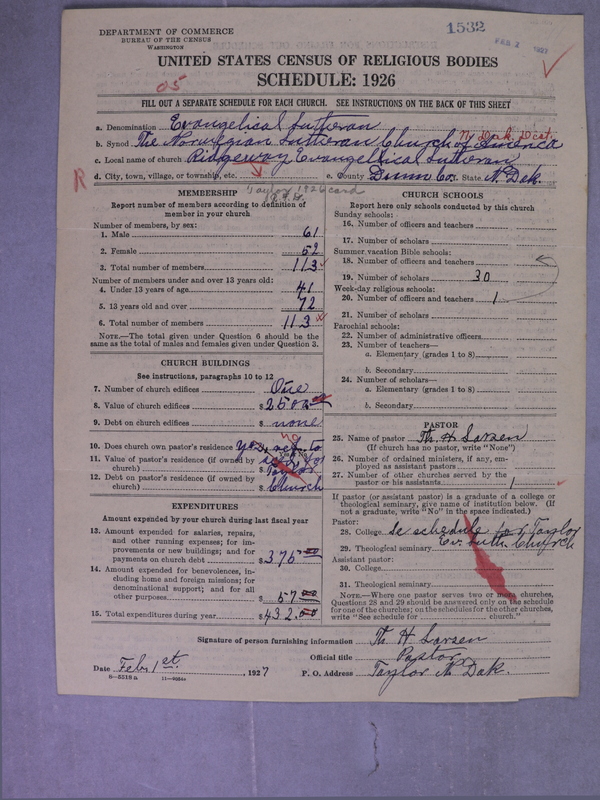 DEPARTMENT OF COMMERCE
BUREAU OF THE CENSUS
WASHINGTON
1532
FEB 2 1927
UNITED STATES CENSUS OF RELIGIOUS BODIES
SCHEDULE: 1926
05
FILL OUT A SEPARATE SCHEDULE FOR EACH CHURCH. SEE INSTRUCTIONS ON THE BACK OF THIS SHEET
a. Denomination Evangelical Lutheran
b. Synod The Norwegian Lutheran Church of America
N. Dak. Dist.
c. Local name of church Ridgeway Evangelical Lutheran
R
d. City, town, village, or township, etc. e. County Dunn Co. State N. Dak.
Taylor 1926 card
MEMBERSHIP
Report number of members according to definition of member in your church
Number of members, by sex:
1. Male 61
2. Female 52
3. Total number of members 113
Number of members under and over 13 years old:
4. Under 13 years of age 41
5. 13 years old and over 72
6. Total number of members 113
NOTE.—The total given under Question 6 should be
same as the total of males and females given under Question 3.
CHURCH BUILDINGS
See instructions, paragraphs 10 to 12
7. Number of church edifices One
8. Value of church edifices $ 2500.00
9. Debt on church edifices $ none
10. Does church own pastor's residence yes, ref. to
no
11. Value of pastor's residence (if owned by
church) $
Taylor
12. Debt on pastor's residence (if owned by
church) $ Church
EXPENDITURES
Amount expended by your church during last fiscal year
13. Amount expended for salaries, repairs,
and other running expenses; for im-
provements or new buildings; and for
payments on church debt $ 375.00
14. Amount expended for benevolences, in-
cluding home and foreign missions; for
denominational support; and for all
other purposes $ 57.00
15. Total expenditures during year $ 432.00
CHURCH SCHOOLS
Report here only schools conducted by this church
Sunday schools:
16. Number of officers and teachers
17. Number of scholars
Summer vacation Bible schools:
18. Number of officers and teachers
19. Number of scholars 30
Week-day religious schools:
20. Number of officers and teachers 1
21. Number of scholars
Parochial schools:
22. Number of administrative officers
23. Number of teachers—
a. Elementary (grades 1 to 8)
b. Secondary
24. Number of scholars—
a. Elementary (grades 1 to 8)
b. Secondary
PASTOR
25. Name of pastor Th. H. Larsen
(If church has no pastor, write "None")
26. Number of ordained ministers, if any, em-
ployed as assistant pastors
27. Number of other churches served by the
pastor or his assistants 1
If pastor (or assistant pastor) is a graduate of a college or
theological seminary, give name of institution below. (If
not a graduate, write "No" in the space indicated.)
Pastor:
28. College Se schedule for Taylor
Ev. Luth. Church
29. Theological seminary
Assistant pastor:
30. College
31. Theological seminary
NOTE.—Where one pastor serves two or more churches,
Questions 28 and 29 should be answered only on the schedule
for one of the churches; on the schedules for the other churches,
write "See schedule for church."
Signature of person furnishing information Th. H Larsen
Official title Pastor
Date Feb. 1st, 1927 P. O. Address Taylor N. Dak.
8—5518 a